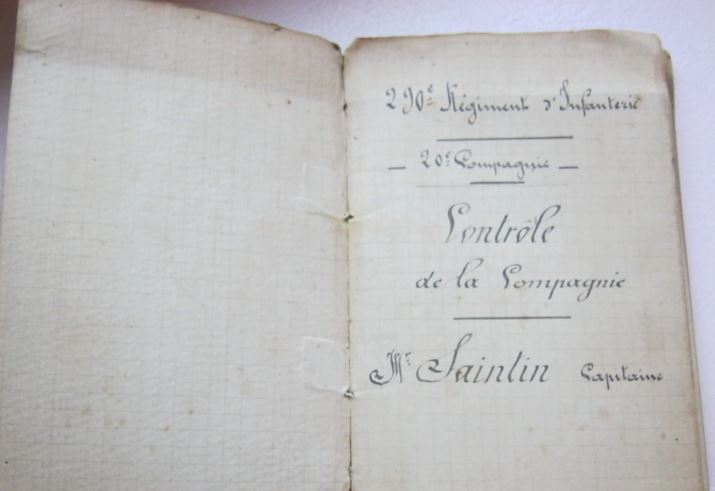 290e Régiment d'Infanterie
— 20e Compagnie —
Contrôle
de la Compagnie
Mr Saintin Capitaine